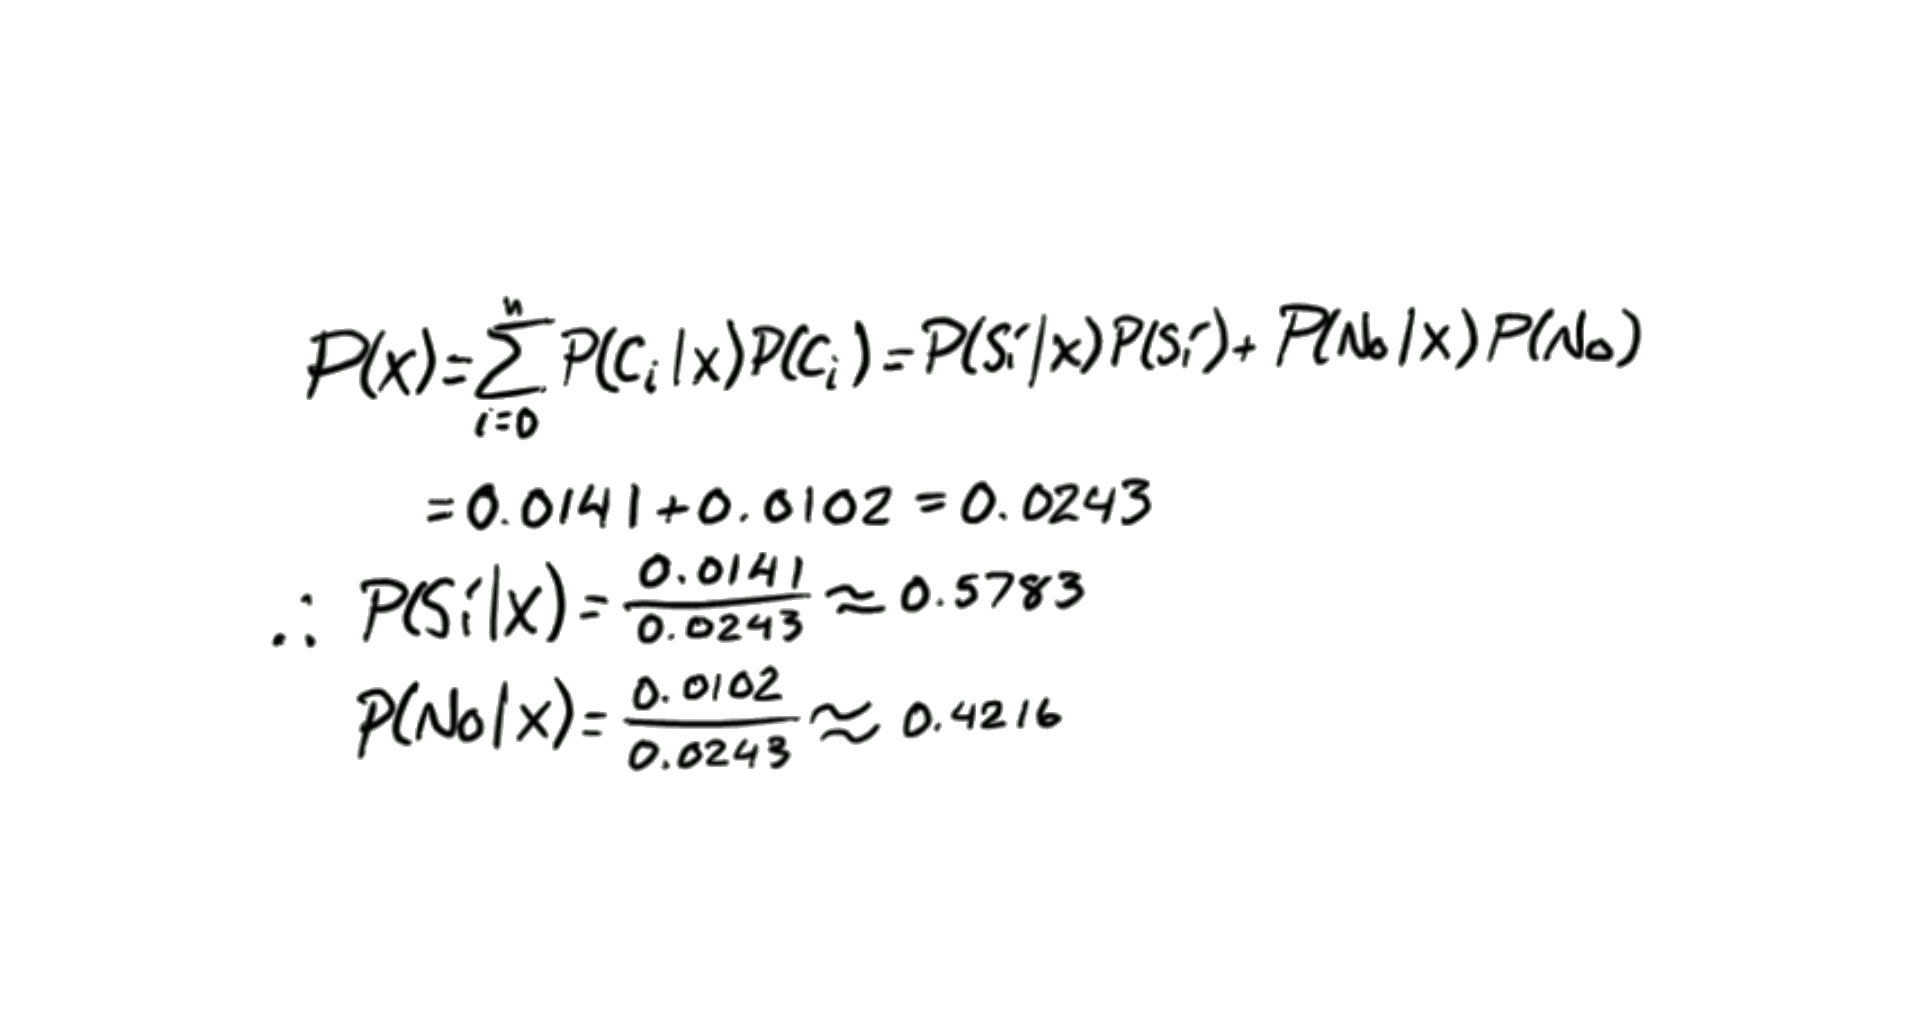 P(x)=∑_{i=0}^{n} P(C_i|x)P(C_i)=P(Sí|x)P(Sí)+P(No|x)P(No)
=0.0141+0.0102=0.0243
∴ P(Sí|x)=0.0141/0.0243≈0.5783
P(No|x)=0.0102/0.0243≈0.4216